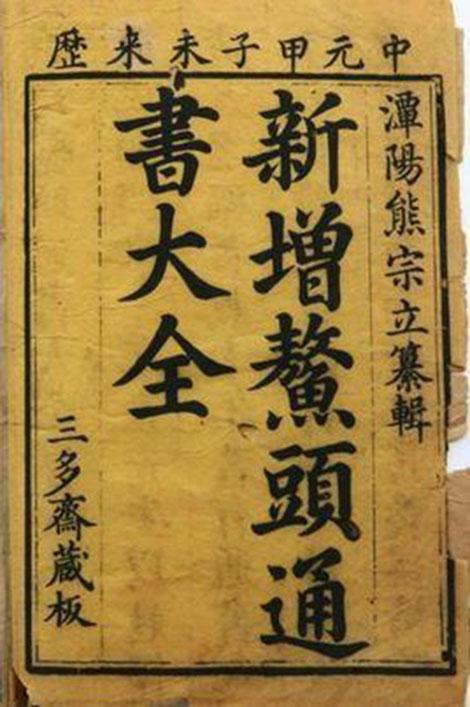 中元甲子未来歷
潭陽熊宗立纂輯
新增鰲頭通
書大全
三多齋蔵板